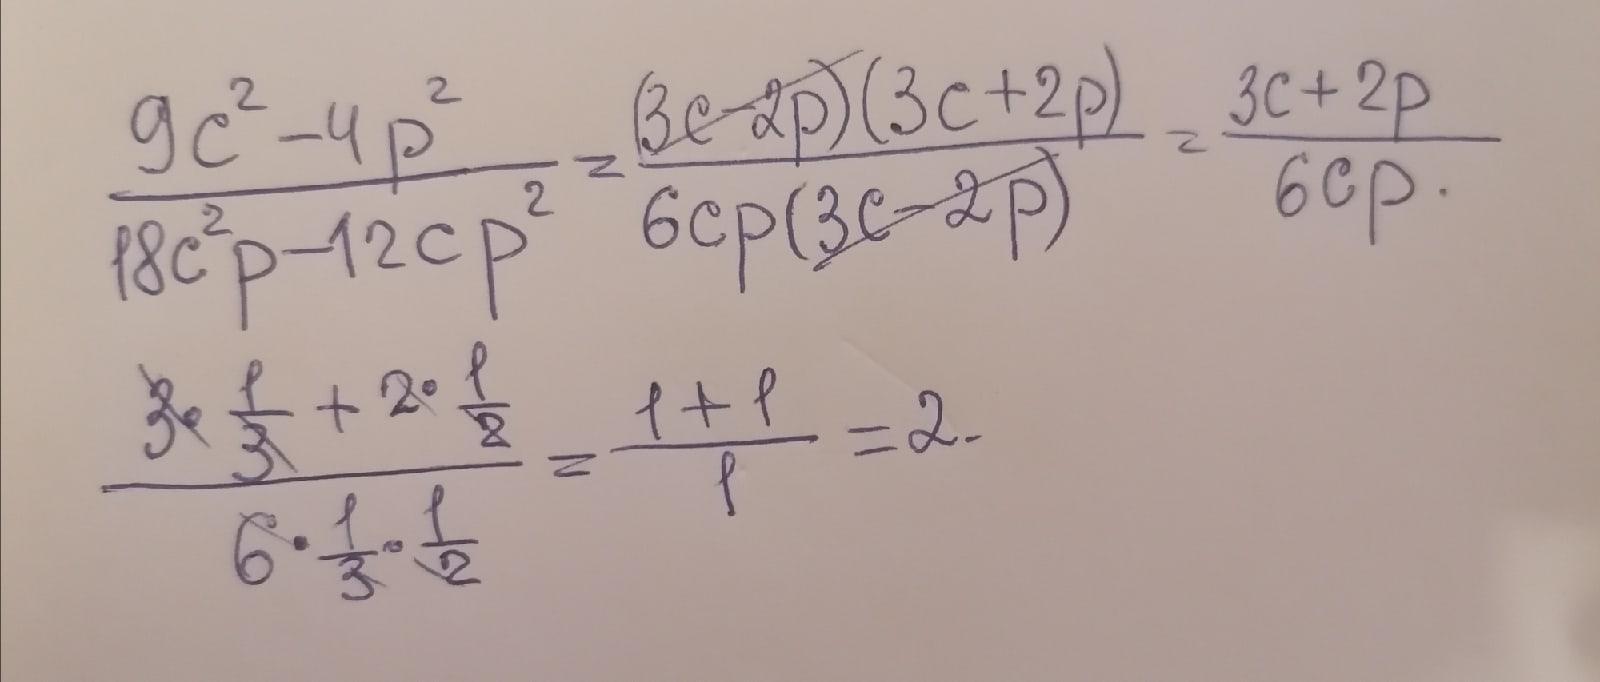 (9c² - 4p²)/(18c²p - 12cp²) = ((3c - 2p)(3c + 2p))/(6cp(3c - 2p)) = (3c + 2p)/(6cp).
(3·1/3 + 2·1/2)/(6·1/3·1/2) = (1 + 1)/1 = 2.